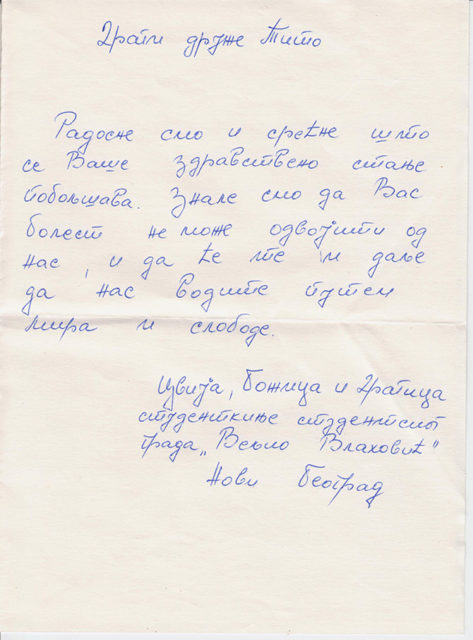 Драги друже Тито
Радосне смо и срећне што
се Ваше здравствено стање
побољшава. Знале смо да Вас
болест не може одвојити од
нас, и да ће те и даље
да нас водите путем
мира и слободе.
Цвија, Божица и Драгица
студенткиње студентског
града „Вељко Влаховић"
Нови Београд